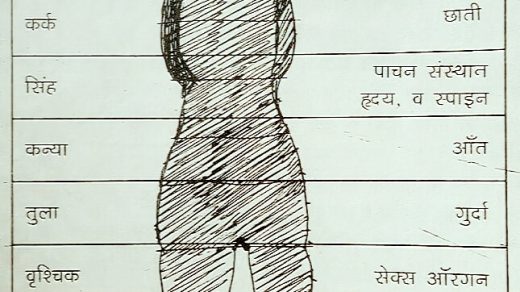 कर्क छाती
सिंह पाचन संस्थान
हृदय, व स्पाइन
कन्या आँत
तुला गुर्दा
वृश्चिक सेक्स ऑरगन